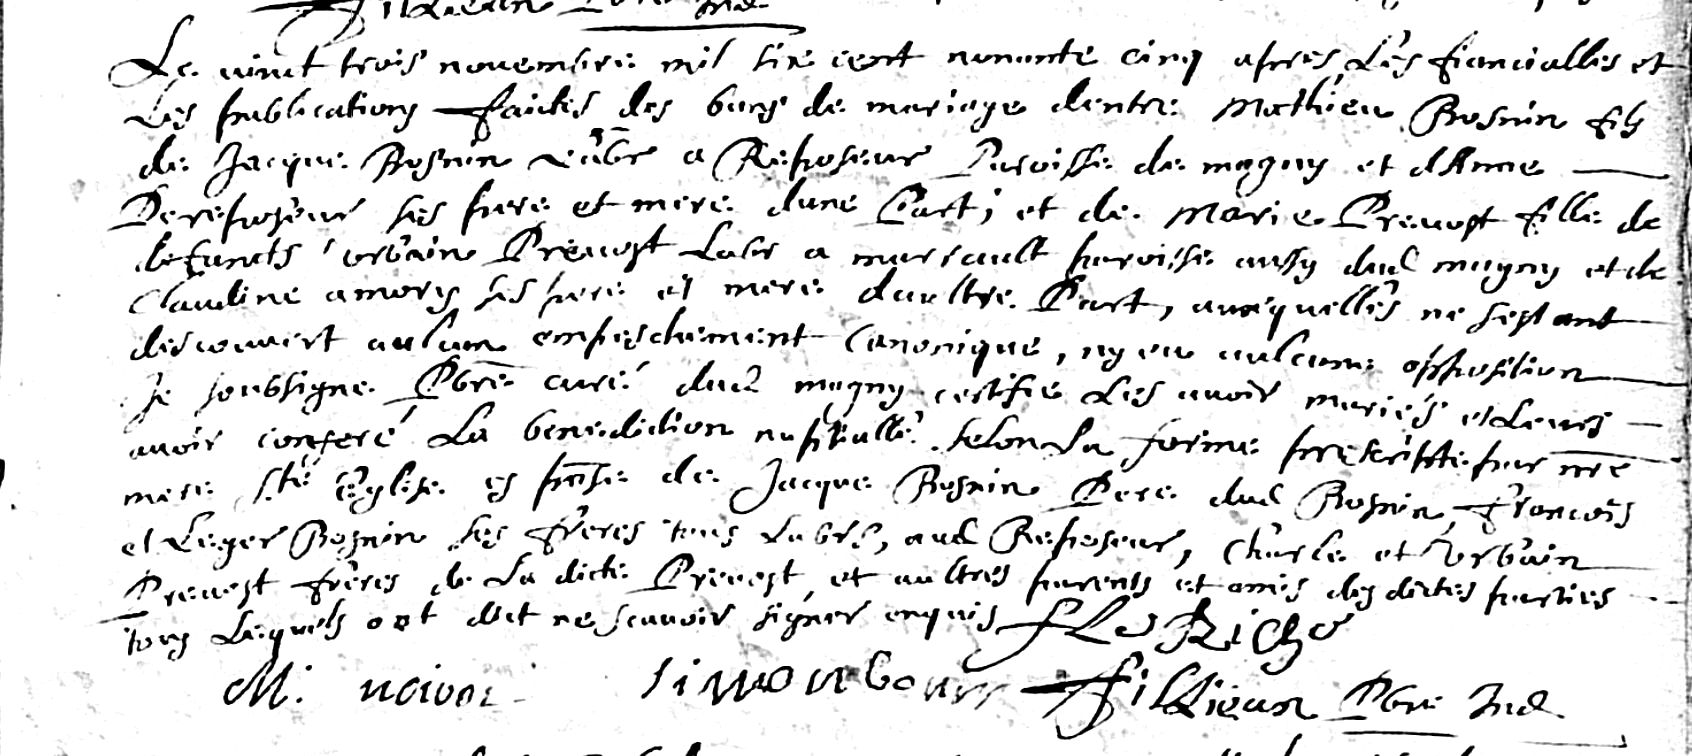 Le vint trois novembre mil six cent nonente cinq apres les fiancialles et
les publications faictes des bans de mariage dentre Mathieu Bosnin fils
de Jacque Bosnin Labr a Reposeur Paroisse de magny et dAnne
Dereposeur ses pere et mere dune Part, et de Marie Prevost fille de
defuncts urbain Prevost Labr a marsault paroisse aussy dud magny et de
Claudine amory ses pere et mere daultre Part, ausquelles ne sestant
descouvert aulcun empeschement Canonique, ny eu aulcune opposition
Je soubsigne Pbre curé dud magny certifie les avoir mariés et leurs
avoir conferé La benediction nuptialle selon La forme prescripte par nre
mere Ste Eglise es pnse de Jacque Bosnin Pere dud Bosnin, françois
et Leger Bosnin ses freres tous Labrs, aud Reposeur, Charle et Urbain
Prevost freres de La dicte Prevost, et aultres parents et amis desdictes parties
tous lesquels ont dict ne scavoir signer enquis F Le Riche
M. noirot Simon bonin filzieux Pbre Ind